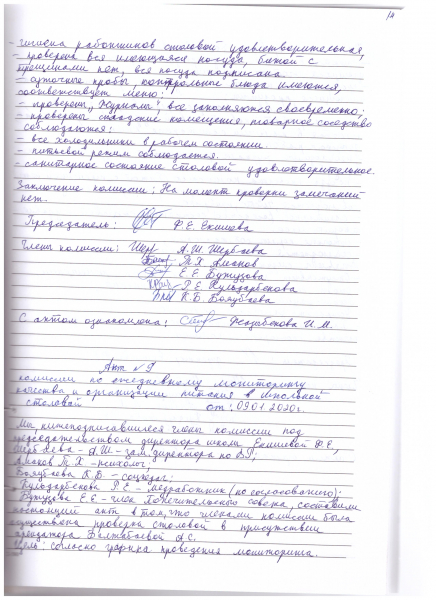 - гигиена работников столовой удовлетворительная,
- проверена вся имеющаяся посуда, битой с
трещинами нет, вся посуда подписана
- суточные пробы контрольные блюда имеются,
соответствует меню.
- проверены "Журналы" все заполняются своевременно;
- проверены складские помещения, товарное соседство
соблюдаются!
- все холодильники в рабочем состоянии
- питьевой режим соблюдается.
- санитарное состояние столовой удовлетворительное.
Заключение комиссии: На момент проверки замечаний
нет.
Председатель: Ф.Е. Екишева
Члены комиссии: А.Ш. Шербаева
Т.Х. Аманов
Е.Е. Бужузова
Г.Е. Кулдарбекова
К.Б. Болубаева
С актом ознакомлена: И.М.
Акт №9
комиссии по ежедневному мониторингу
качества и организации питания в школьной
столовой от: 09.01.2020г.
Мы, нижеподписавшиеся члены комиссии под
председательством директора школы Екишевой Ф.Е,
Шербаева А.Ш - зам. директора по ВР;
Аманов Т.Х - психолог;
Болубаева К.Б - соцпедаг;
Кулдарбекова Г.Е - медработник (по согласованию);
Бужузова Е.Е - член Попечительского совета, составили
настоящий акт в том, что членами комиссии была
осуществлена проверка столовой в присутствии
арендатора А.С.
Цель: согласно графика проведения мониторинга.